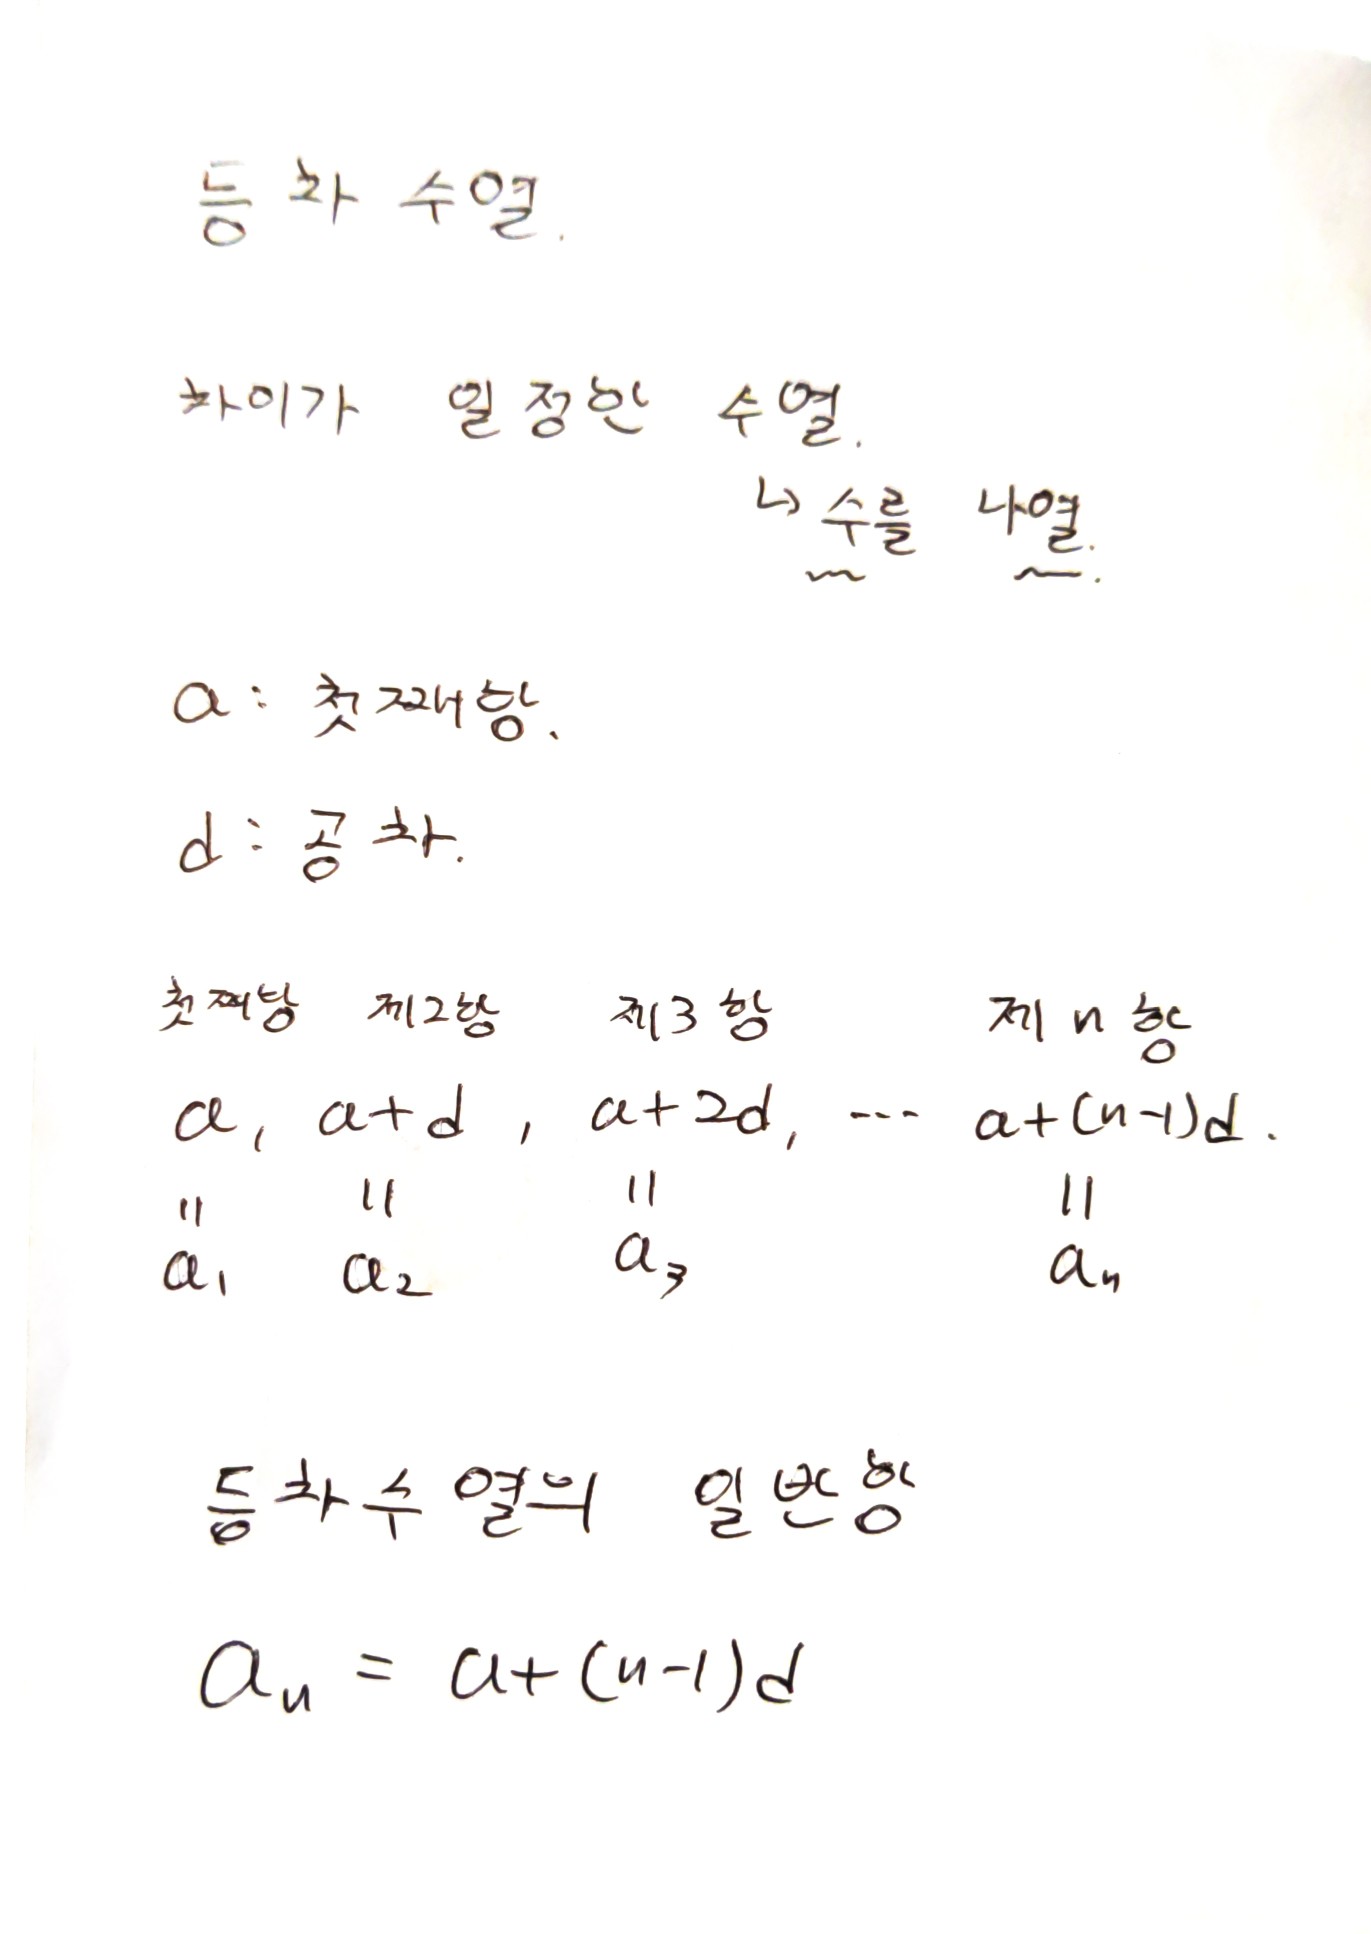 등차수열.
차이가 일정한 수열.
↳ 수를 나열.
a : 첫째항.
d : 공차.
첫째항 제2항 제3항 제n항
a, a+d, a+2d, ... a+(n-1)d.
= = = =
a₁ a₂ a₃ aₙ
등차수열의 일반항
aₙ = a+(n-1)d